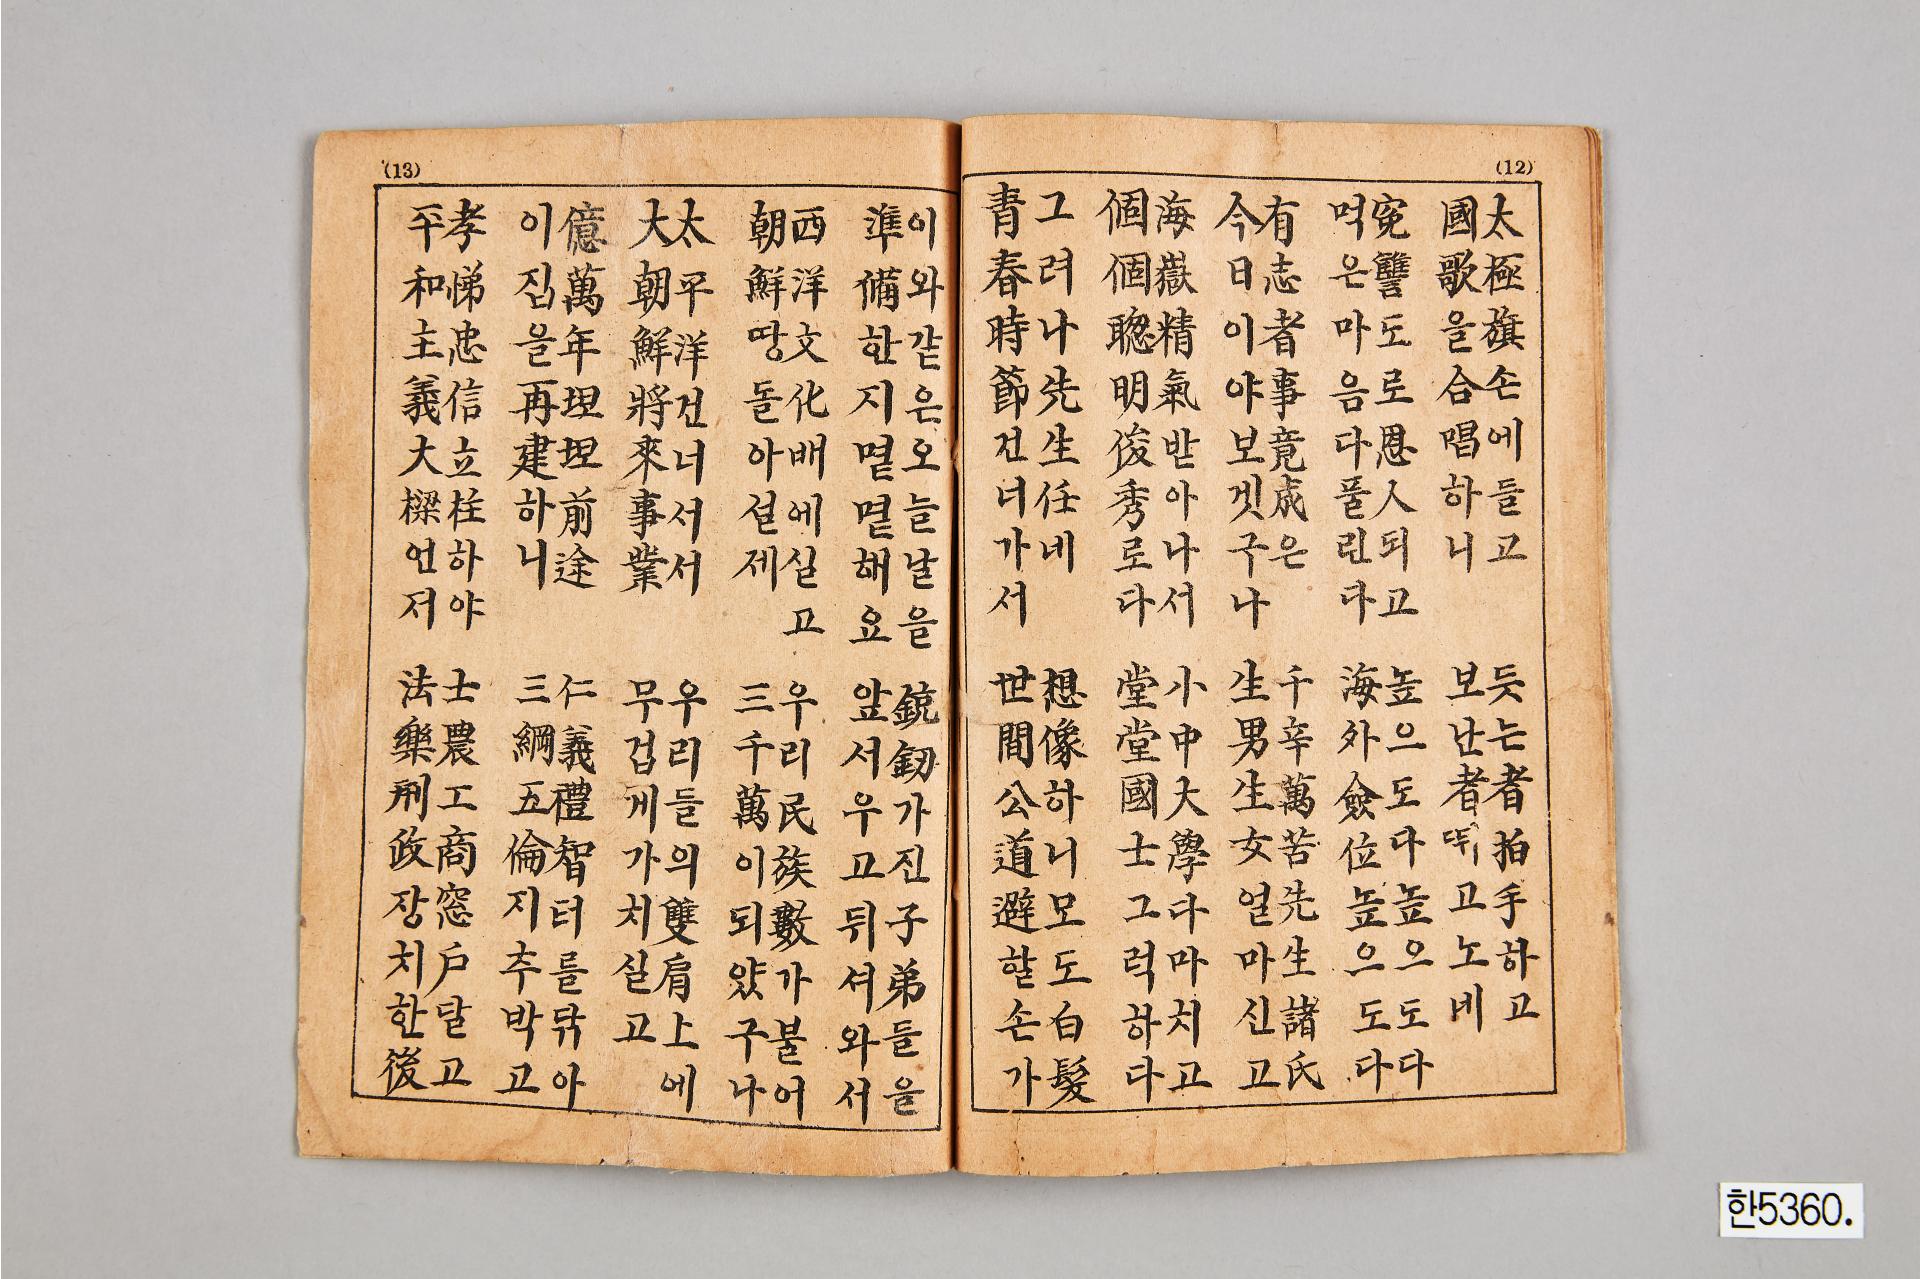 (12)
太極旗손에들고
國歌을合唱하니
듯는者拍手하고
보난者뛰고노네
寃讐도로恩人되고
먹은마음다풀린다
높으도다높으도다
海外僉位높으도다
有志者事竟成은
今日이야보겟구나
千辛萬苦先生諸氏
生男生女얼마신고
海嶽精氣받아나서
個個聰明俊秀로다
小中大學다마치고
堂堂國士그럭하다
그러나先生任네
靑春時節건너가서
想像하니모도白髮
世間公道避할손가
(13)
이와같은오늘날을
準備한지몇몇해요
銃釰가진子弟들을
앞서우고뒤셔와서
西洋文化배에실고
朝鮮땅돌아설제
우리民族數가불어
三千萬이되얐구나
太平洋건너서서
大朝鮮將來事業
우리들의雙肩上에
무겁게가치실고
億萬年坦坦前途
이집을再建하니
仁義禮智터를닦아
三綱五倫지추박고
孝悌忠信立柱하야
平和主義大樑언저
士農工商窓戶달고
法樂刑政장치한後
한5360.